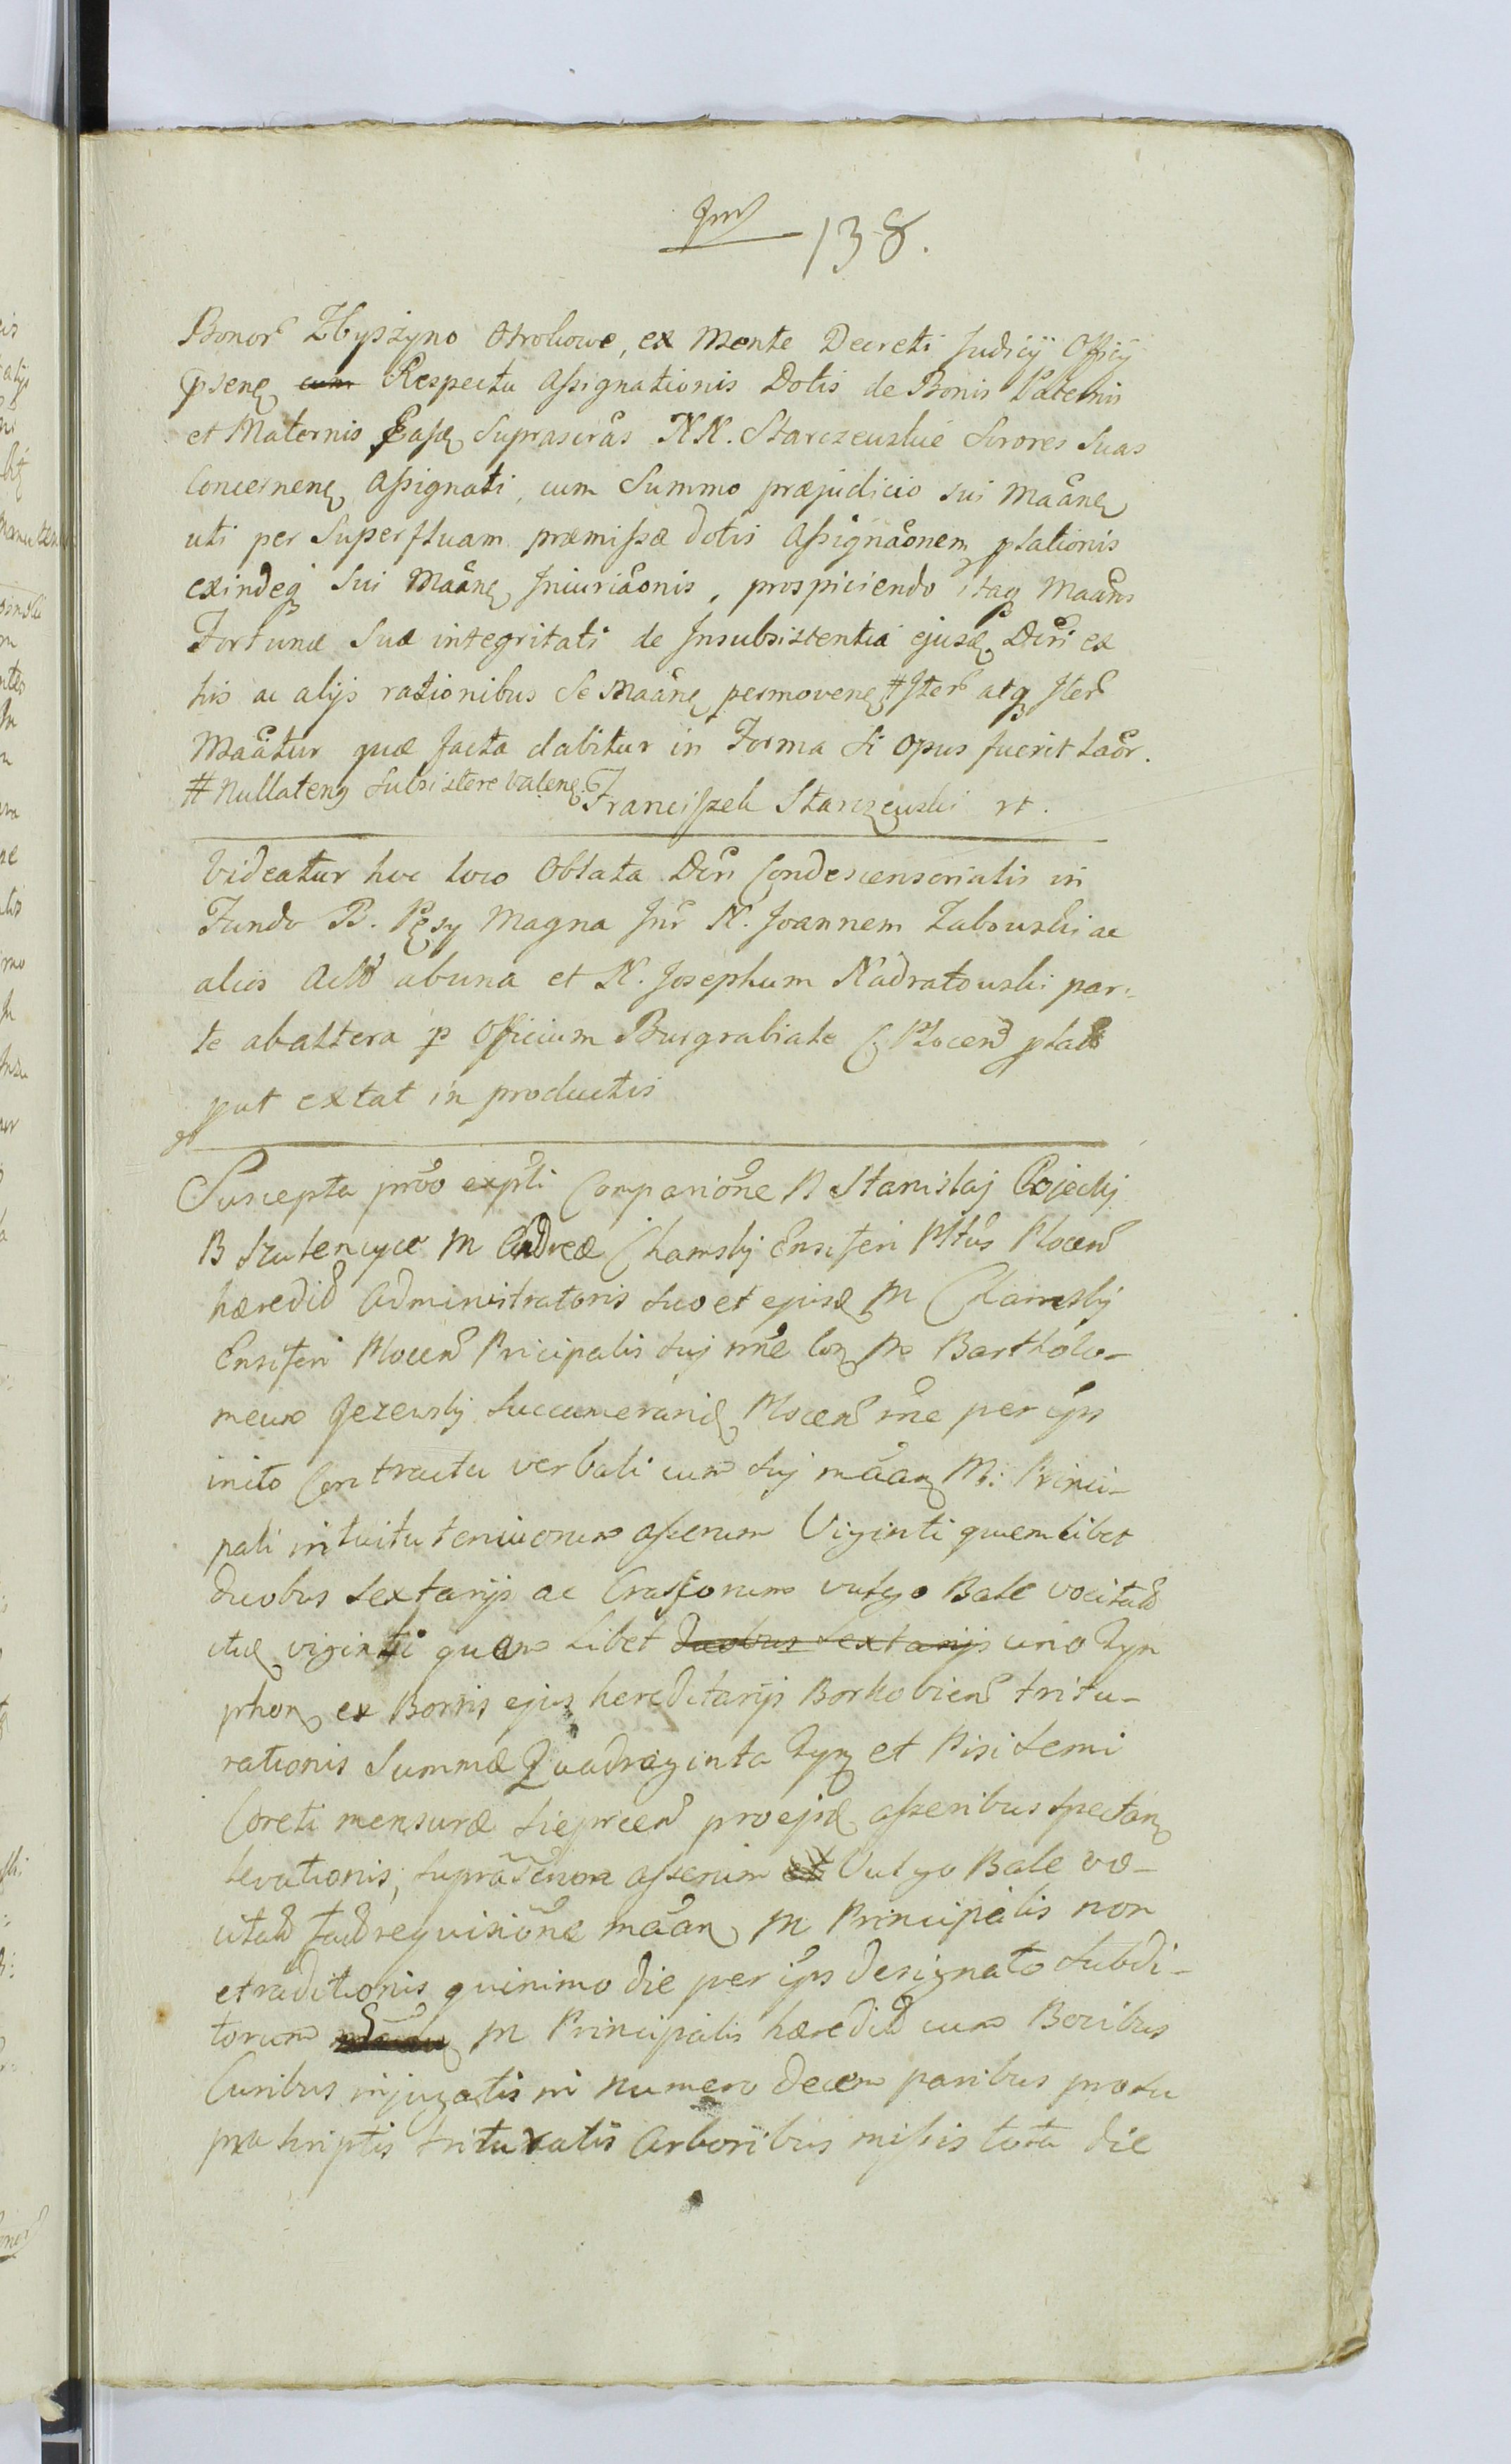 138.
Bonor Zbyszyno Otrokowe, ex Mente Decreti Judicij Officij
psen cum Respectu Assignationis Dotis de Bonis Paternis
et Maternis Easd Suprascras NN. Starczewskie Sorores Suas
Concernen Assignati, cum Summo præjudicio sui Maãn
uti per Superfluam præmissæ dotis Assignãonem ptationis
exindeq sui Maãn Iniuriãonis, prospiciendo itaq Maãns
Fortunæ Suæ integritati de Insubsistentia ejusd Dcri ex
his ac alijs rationibus Se Maãn permoven # Iter atq Iter
Maãtur quæ facta dabitur in Forma Si Opus fuerit Laõr.
# Nullaten Subsistere valen. Franciszek Starczewski
Videatur hoc loco Oblata Dcri Condescensorialis in
Fundo B. Pęsy Magna Inr N. Joannem Zabowski ac
alios Act abuna et N. Josephum Nadratowski par-
te abaltera p Officium Burgrabiale C. Plocen
put extat in productis
Suscepta prõo expti Comparitione N Stanislaj Cojecky
B Szulencyce M Andreæ Chamsky Ensiferi Pltus Plocen
hæredit Administratoris suo et ejusd M Chamsky
Ensiferi Plocen Pricipalis suj nne M Bartholo-
meum Jezewsky Succameranid Plocen per ips
inito Contractu verbali cum suj maãn M: Princi-
pali intuitu tenuiorum asserum Viginti quemlibet
duobus sextarijs ac Crassiorum vulgo Bale vocitat
itid viginti quem libet duobus sextarijs uno Tyn
phon ex Bonis ejus hereditarijs Borkobicen tritu-
rationis Summæ Quadraginta Tyn et Pisi semi
Coreti mensuræ Sieprcen pro ejsd asseribus spectan
levationis, supra asserum et Vulgo Bale vo-
citat requisitione maãn M Principalis non
extraditionis quinimo die per ips designato Subdi-
torum M Principalis hæredit cum Bovibus
Curribus injugatis in numero decem paribus
præscriptis trituratis Arboribus missis tota die